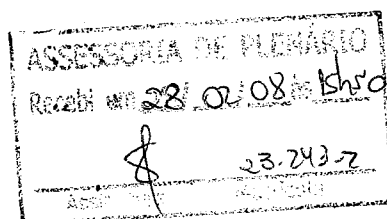 ASSESSORIA DE PLENÁRIO
Recebi em 28/02/08 às 15h50
23.243-2
Assinatura Matrícula